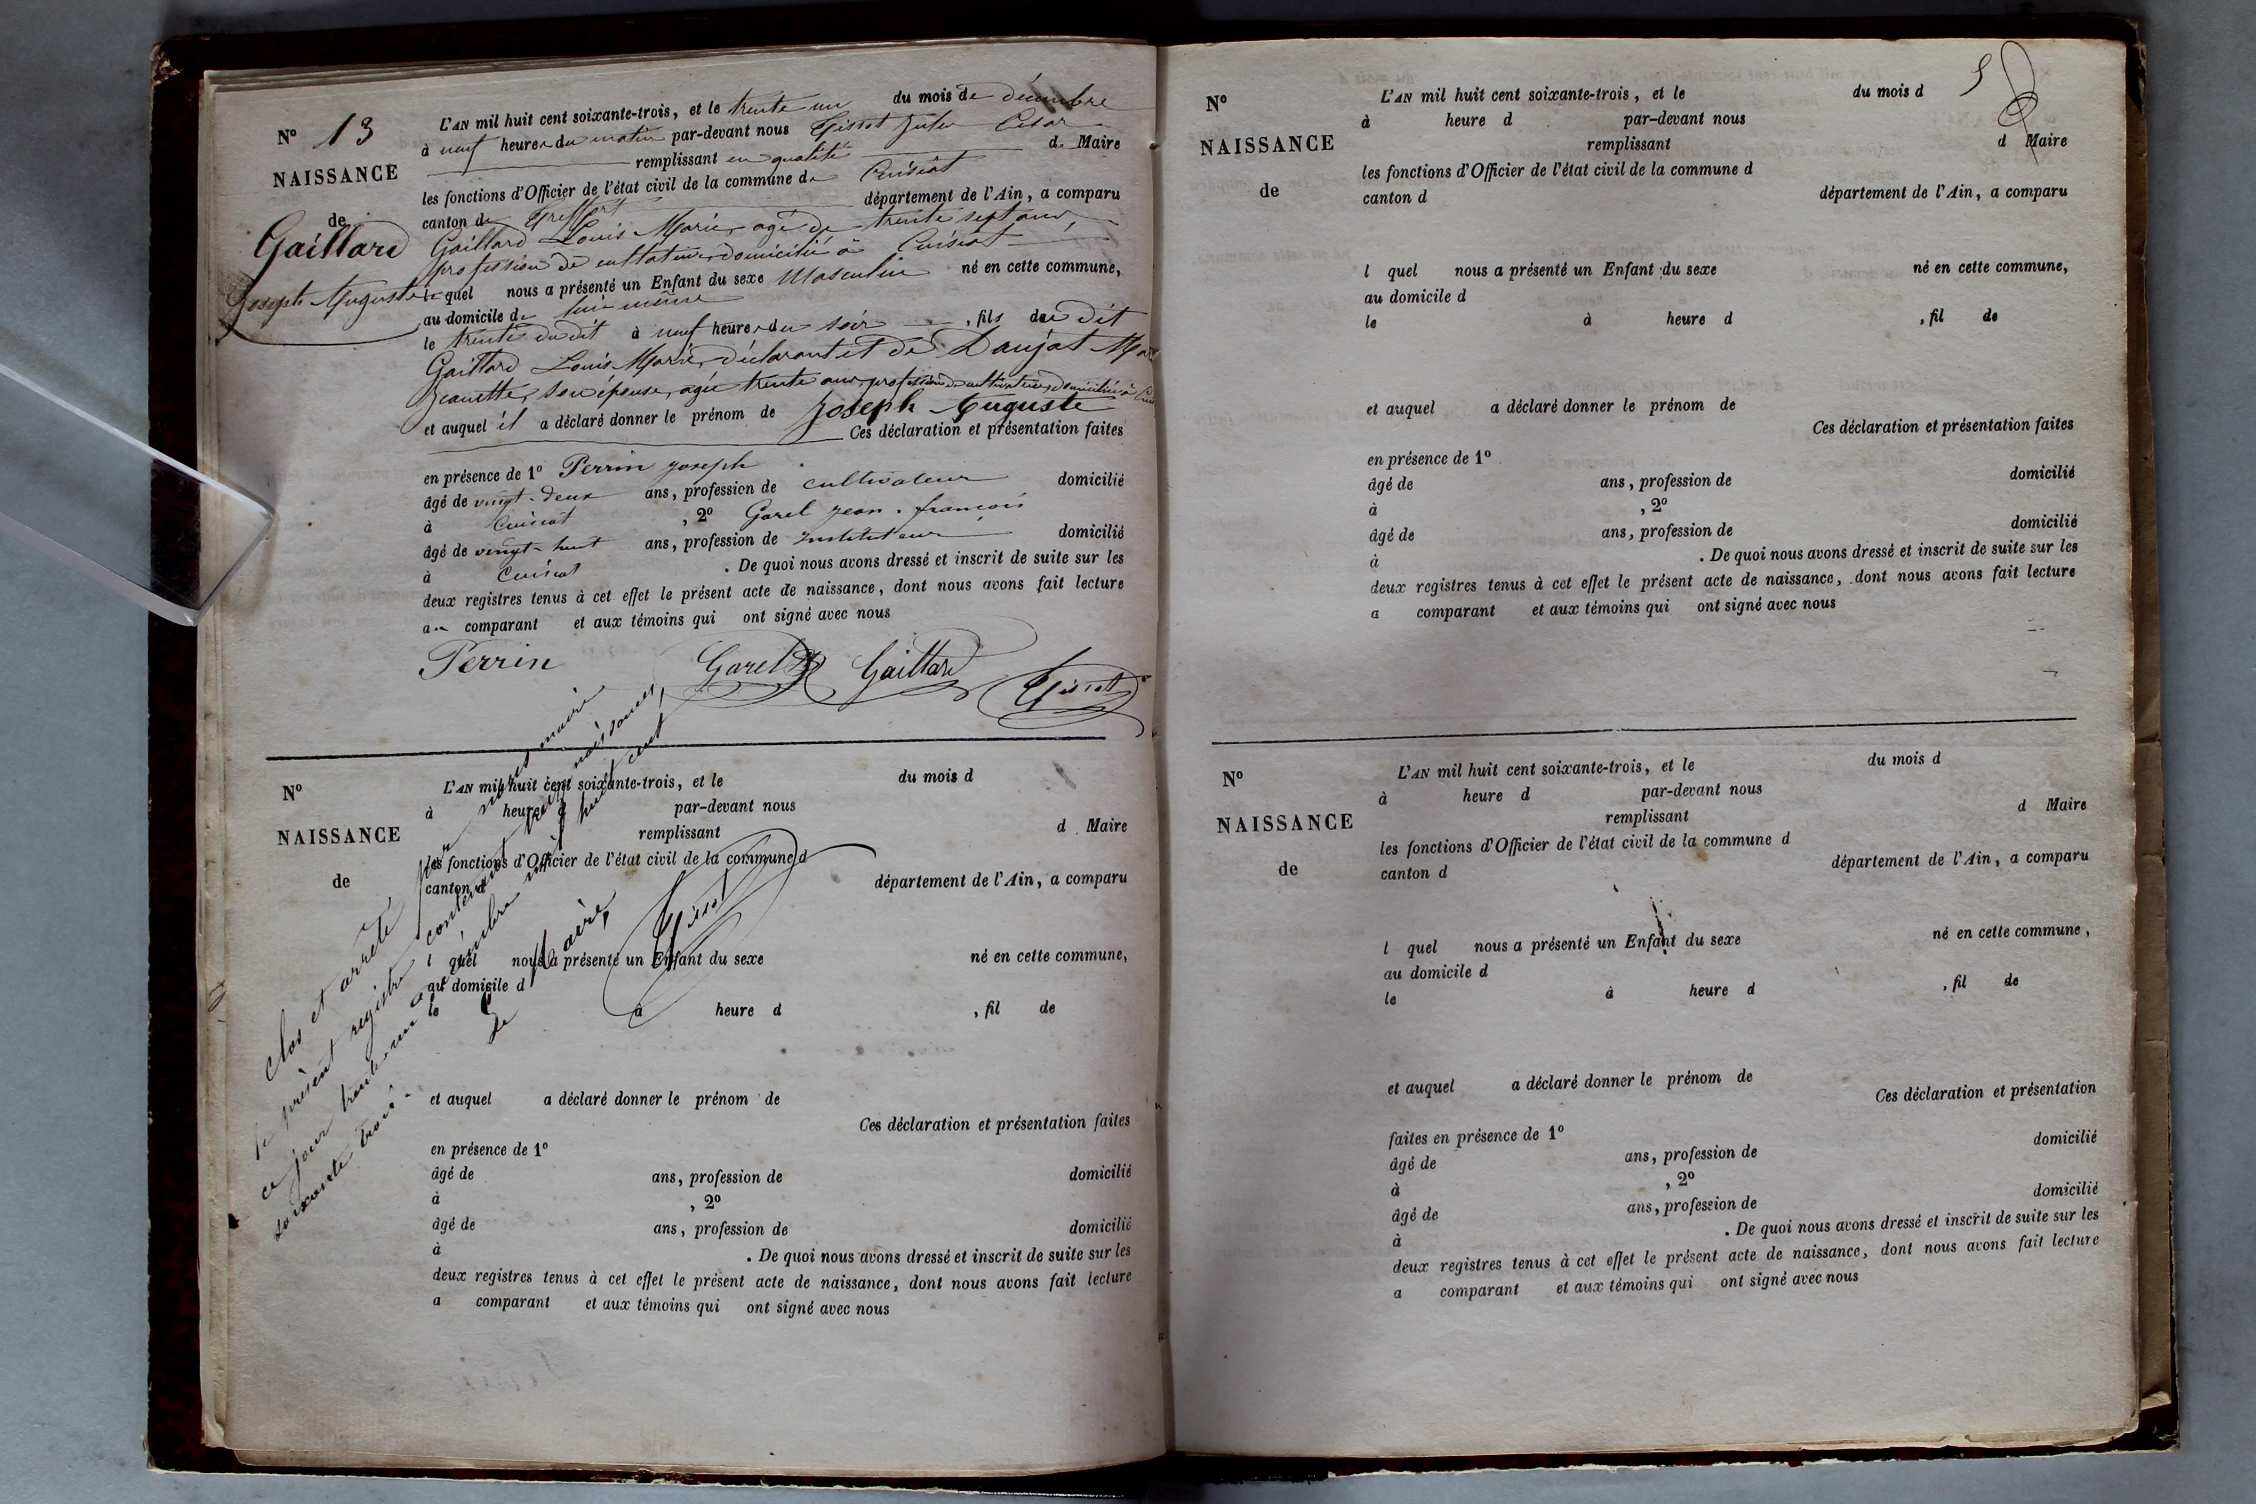 N° 13
NAISSANCE
de
Gaillard
Joseph Auguste
L'AN mil huit cent soixante-trois, et le trente un du mois de décembre
à neuf heures du matin par-devant nous Gissot Jules César
remplissant en qualité de Maire
les fonctions d'Officier de l'état civil de la commune de Cuisiat
canton de Treffort département de l'Ain, a comparu
Gaillard Louis Marie, agé de trente sept ans,
profession de cultivateur, domicilié à Cuisiat
le quel nous a présenté un Enfant du sexe Masculin né en cette commune,
au domicile de lui même
le trente du dit à neuf heures du soir, fils de dit
Gaillard Louis Marie, déclarant et de Daujat
Jeanette, son épouse, agée trente ans, profession de cultivatrice, domiciliée à
et auquel il a déclaré donner le prénom de Joseph Auguste
Ces déclaration et présentation faites
en présence de 1° Perrin joseph
âgé de vingt-deux ans, profession de cultivateur domicilié
à Cuisiat, 2° Garel jean-françois
âgé de vingt-huit ans, profession de instituteur domicilié
à Cuisiat. De quoi nous avons dressé et inscrit de suite sur les
deux registres tenus à cet effet le présent acte de naissance, dont nous avons fait lecture
au comparant et aux témoins qui ont signé avec nous
Perrin Garel Gaillard Gissot
N°
NAISSANCE
de
L'AN mil huit cent soixante-trois, et le du mois d
à heure d par-devant nous
remplissant d Maire
les fonctions d'Officier de l'état civil de la commune d
canton d département de l'Ain, a comparu
l quel nous a présenté un Enfant du sexe né en cette commune,
au domicile d
le à heure d , fil de
et auquel a déclaré donner le prénom de
Ces déclaration et présentation faites
en présence de 1°
âgé de ans, profession de domicilié
à , 2°
âgé de ans, profession de domicilié
à . De quoi nous avons dressé et inscrit de suite sur les
deux registres tenus à cet effet le présent acte de naissance, dont nous avons fait lecture
a comparant et aux témoins qui ont signé avec nous
Clos et arrêté par nous maire
le présent registre contenant naissances,
ce jour trente-un décembre mil huit cent
soixante trois.
Le Maire,
Gissot
5
N°
NAISSANCE
de
L'AN mil huit cent soixante-trois, et le du mois d
à heure d par-devant nous
remplissant d Maire
les fonctions d'Officier de l'état civil de la commune d
canton d département de l'Ain, a comparu
l quel nous a présenté un Enfant du sexe né en cette commune,
au domicile d
le à heure d , fil de
et auquel a déclaré donner le prénom de
Ces déclaration et présentation faites
en présence de 1°
âgé de ans, profession de domicilié
à , 2°
âgé de ans, profession de domicilié
à . De quoi nous avons dressé et inscrit de suite sur les
deux registres tenus à cet effet le présent acte de naissance, dont nous avons fait lecture
a comparant et aux témoins qui ont signé avec nous
N°
NAISSANCE
de
L'AN mil huit cent soixante-trois, et le du mois d
à heure d par-devant nous
remplissant d Maire
les fonctions d'Officier de l'état civil de la commune d
canton d département de l'Ain, a comparu
l quel nous a présenté un Enfant du sexe né en cette commune,
au domicile d
le à heure d , fil de
et auquel a déclaré donner le prénom de
Ces déclaration et présentation
faites en présence de 1° domicilié
âgé de ans, profession de
à , 2°
âgé de ans, profession de domicilié
à . De quoi nous avons dressé et inscrit de suite sur les
deux registres tenus à cet effet le présent acte de naissance, dont nous avons fait lecture
a comparant et aux témoins qui ont signé avec nous